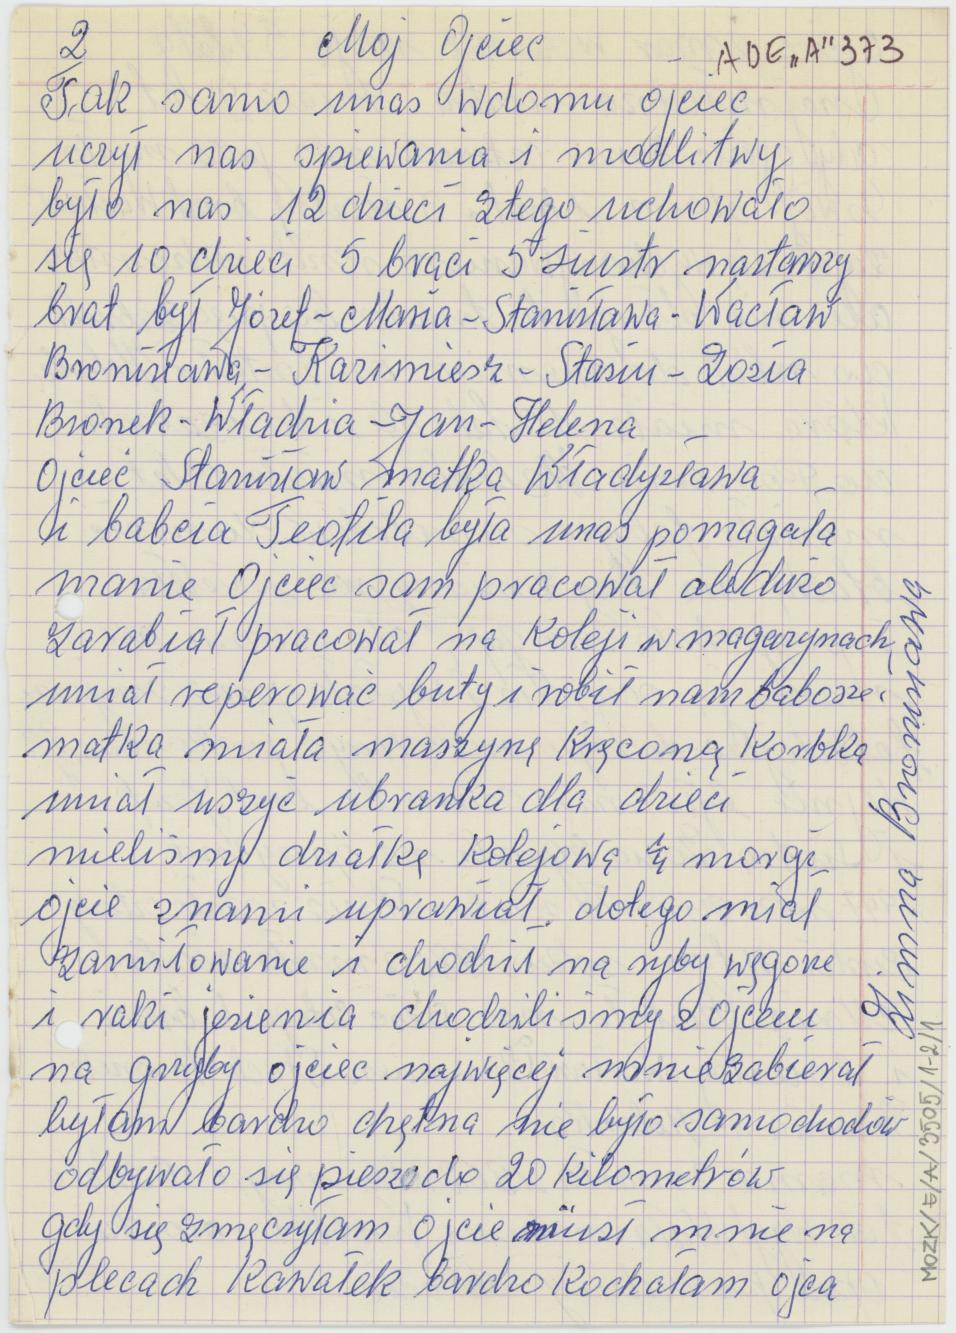 2 Moj Ojciec ADE „A" 373
Tak samo unas wdomu ojciec
uczył nas spiewania i modlitwy
było nas 12 dzieci ztego uchowało
się 10 dzieci 5 braci 5 siustr nastarszy
brat był Józef - Maria - Stanisława - Wacław
Bronisława - Kazimiesz - Stasiu - Zosia
Bronek - Władzia - Jan - Helena
Ojcieć Stanisław matka Władyzława
i babcia Teofila była unas pomagała
mamie Ojciec sam pracował ale dużo
zarabiał pracował na Koleji w magazynach
umiał reperować buty i robił nam
matka miała maszynę Kręconą Korbką
umiał uszyć ubranka dla dzieci
mieliśmy działkę Kolejową morgi
ojcie znami uprawiał. dotego miał
zamiłowanie i chodził na ryby węgorze
i raki jesienia chodziliśmy z Ojcem
na grzyby ojciec najwięcej mnie zabierał
byłam bardzo chętna nie było samochodów
odbywało się pieszo do 20 Kilometrów
gdy się zmęczyłam Ojcie niusł mnie na
plecach Kawałek bardzo Kochałam ojca
MOZK/E/A/3505/1-2/1